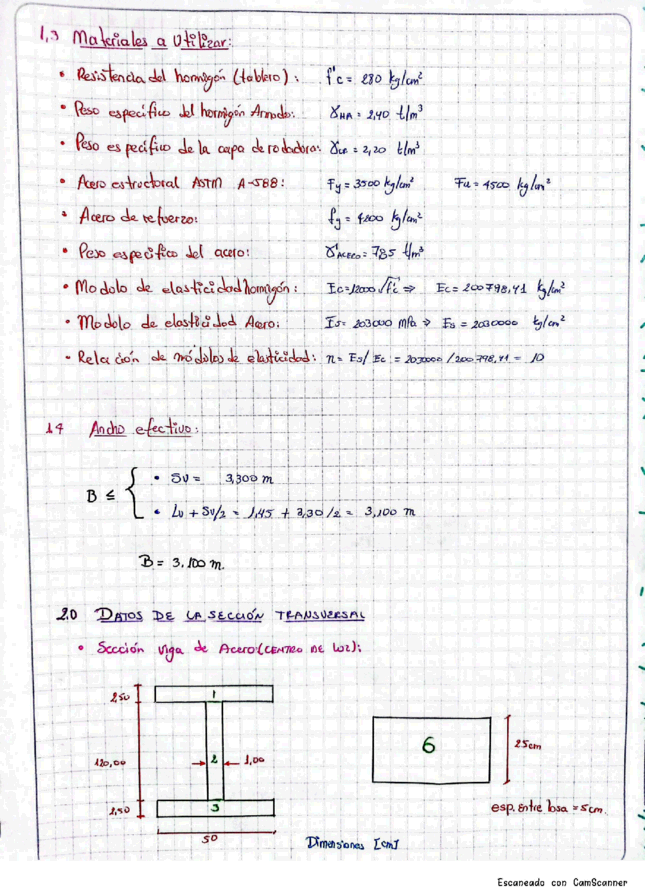 1,3 Materiales a Utilizar:
• Resistencia del hormigón (tablero): f'c = 280 kg/cm²
• Peso especifico del hormigón Armado: γHA = 2,40 t/m³
• Peso especifico de la capa de rodadura: γCR = 2,20 t/m³
• Acero estructural ASTM A-588: Fy = 3500 kg/cm² Fu = 4500 kg/cm²
• Acero de refuerzo: fy = 4200 kg/cm²
• Peso especifico del acero: γACERO = 7,85 t/m³
• Modolo de elasticidad hormigón: Ec = 12000 √f'c ⇒ Ec = 200798,41 kg/cm²
• Modolo de elasticidad Acero: Es = 203000 MPa ⇒ Es = 2030000 kg/cm²
• Relación de módulos de elasticidad: n = Es/Ec = 2030000/200798,41 = 10
1.4 Ancho efectivo:
B ≤ { • Sv = 3,300 m
• Lv + Sv/2 = 1,45 + 3,30/2 = 3,100 m
B = 3,100 m.
2.0 DATOS DE LA SECCIÓN TRANSVERSAL
• Sección viga de Acero (CENTRO DE LUZ):
2,50 1
120,00 2 1,00
2,50 3
50
6 25cm
esp. entre losa = 5cm.
Dimensiones [cm]
Escaneado con CamScanner